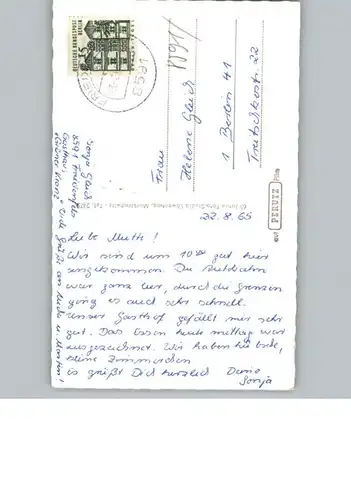 DEUTSCHE BUNDESPOST
BERLIN
15
8591
Frau
Helene Gleich
1 Berlin 41
Treitschkestr. 22
PERUTZ
Sonja Gleich
8591
Gasthof
"Grüner Kranz"
22.8.65
Liebe Mutti!
Wir sind um 10 gut hier
angekommen. Die Autobahn
war ganz leer, durch die Grenzen
ging es auch sehr schnell.
Unser Gasthof gefällt mir sehr
gut. Das Essen heute mittag war
ausgezeichnet. Wir haben hübsche,
kleine Zimmerchen
Es grüßt Dich herzlich Deine
Sonja